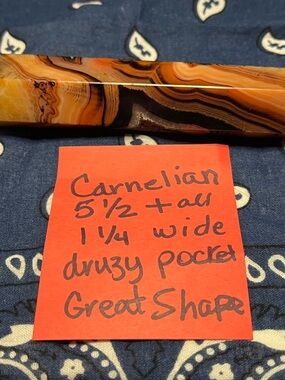 Carnelian
5 1/2 tall
1 1/4 wide
druzy pocket
Great Shape